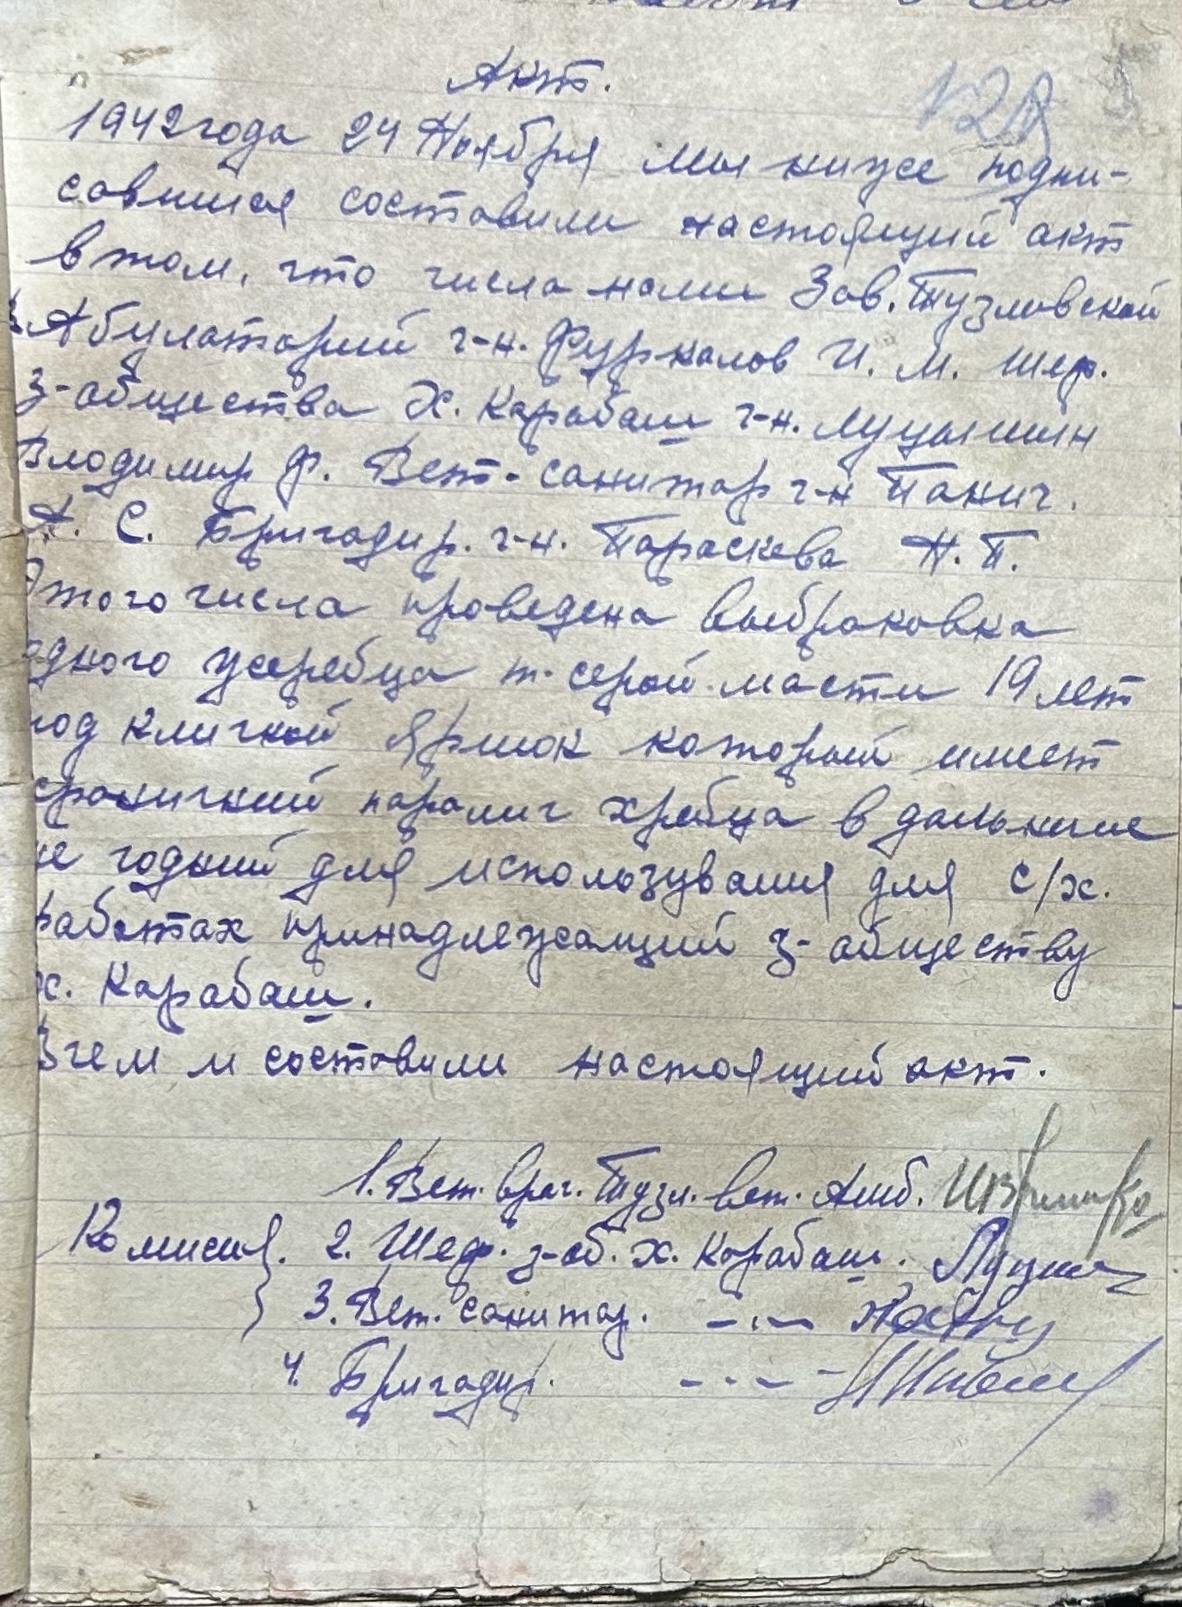 Акт.
128
1942 года 24 Ноября мы ниже подпи-
совшися составили настоящий акт
в том, что числа нами Зав. Тузловской
Абулаторий г-н. Фуркалов И. М. Шеф.
З-общества Х. Карабаш г-н. Луцышин
Владимир Ф. Вет-санитар г-н Панич.
А. С. Бригадир. г-н. Параскева Н. П.
Этого числа проведена выбраковка
одного жеребца т-серой масти 19 лет
под кличкой Яршок который имеет
хроничкий паралич хребца в дальнише
не годний для использувания для с/х.
работах принадлежащий з-обществу
х. Карабаш.
В чем и составили настоящий акт.
1. Вет. врач. Тузл. вет. Амб.
Комисия. 2. Шеф. з-об. х. Карабаш. Луцыш
3. Вет. санитар. —.—
4. Бригадир. —.—